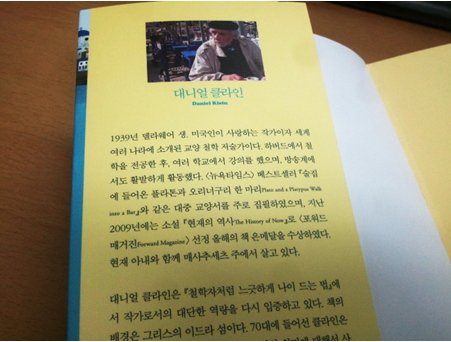 대니얼 클라인
Daniel Klein
1939년 델라웨어 생. 미국인이 사랑하는 작가이자 세계
여러 나라에 소개된 교양 철학 저술가이다. 하버드에서 철
학을 전공한 후, 여러 학교에서 강의를 했으며, 방송계에
서도 활발하게 활동했다. 〈뉴욕타임스〉 베스트셀러 『술집
에 들어온 플라톤과 오리너구리 한 마리Plato and a Platypus Walk
into a Bar』와 같은 대중 교양서를 주로 집필하였으며, 지난
2009년에는 소설 『현재의 역사The History of Now』로 〈포워드
매거진Forward Magazine〉 선정 올해의 책 은메달을 수상하였다.
현재 아내와 함께 매사추세츠 주에서 살고 있다.
대니얼 클라인은 『철학자처럼 느긋하게 나이 드는 법』에
서 작가로서의 대단한 역량을 다시 입증하고 있다. 책의
배경은 그리스의 이드라 섬이다. 70대에 들어선 클라인은